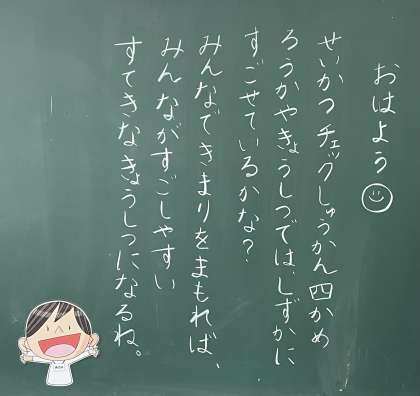 おはよう
せいかつチェックしゅうかん四かめ
ろうかやきょうしつでは、しずかに
すごせているかな?
みんなできまりをまもれば、
みんながすごしやすい
すてきなきょうしつになるね。